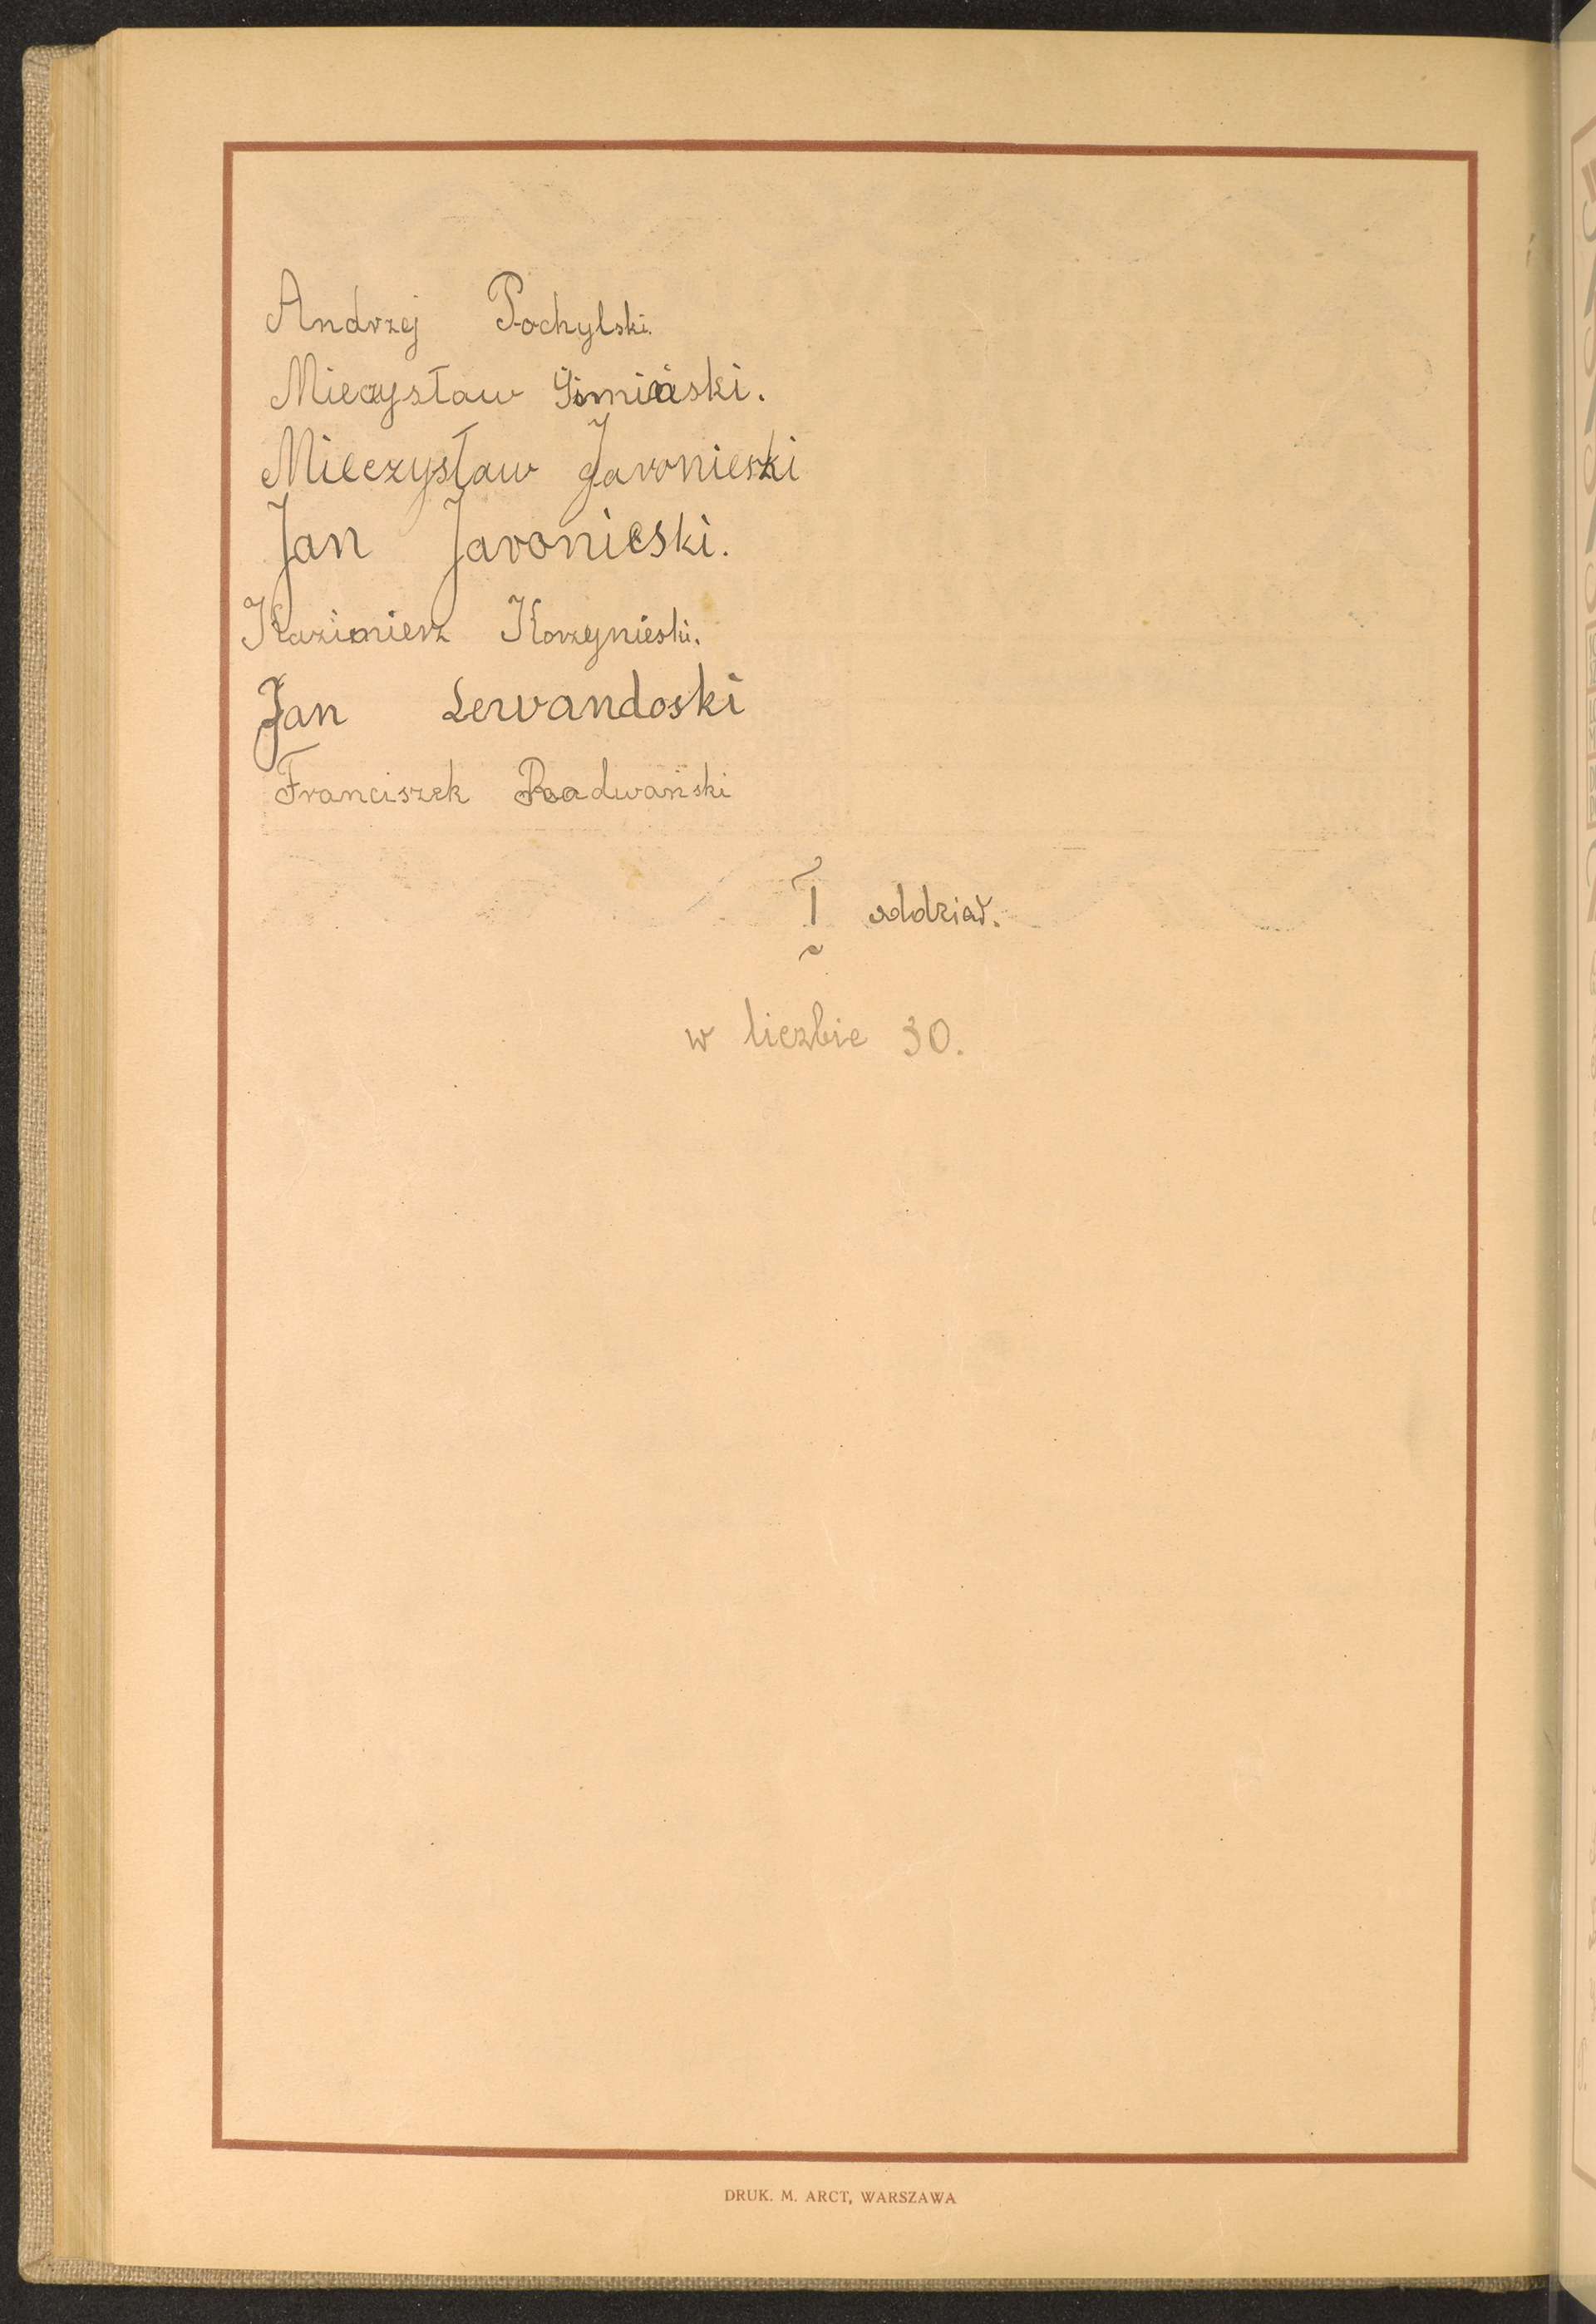 Andrzej Pochylski.
Mieczysław
Mieczysław Jaronieski
Jan Jaronieski.
Kazimierz Korzynieski.
Jan Lewandoski
Franciszek Radwański
I oddział.
w liczbie 30.
DRUK. M. ARCT, WARSZAWA